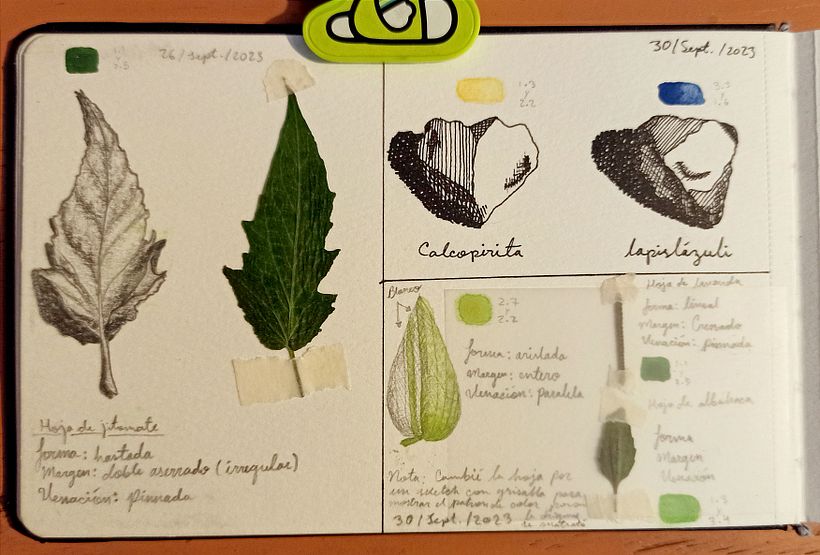 26/Sept./2023
Hoja de jitomate
forma: hastada
Margen: doble aserrado (irregular)
Venación: pinnada
30/Sept./2023
1.3
y
2.2
3.3
y
1.6
Calcopirita
lapislázuli
Blanco
2.7
y
2.2
forma: aristada
Margen: entero
Venación: paralela
Nota: Cambié la hoja por
un sketch con grisalla para
mostrar el patrón de color
30/Sept./2023
Hoja de lavanda
forma: lineal
Margen: Crenado
Venación: pinnada
Hoja de albahaca
forma
Margen
Venación